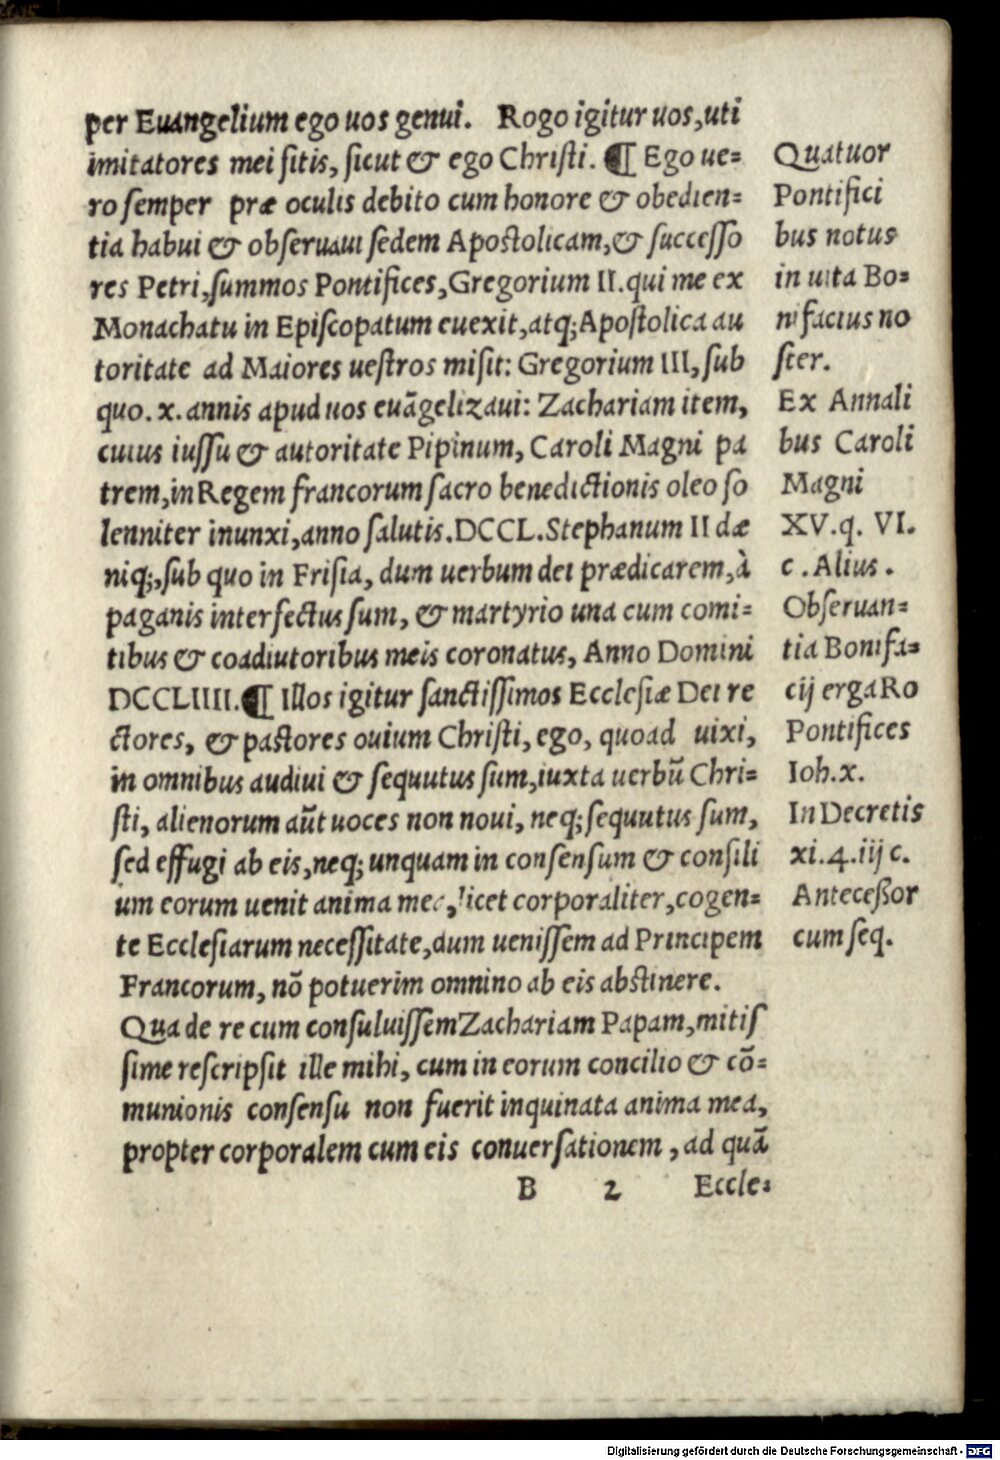 per Euangelium ego uos genui. Rogo igitur uos, uti
imitatores mei sitis, sicut & ego Christi. ¶ Ego ue=
ro semper præ oculis debito cum honore & obedien=
tia habui & obseruaui sedem Apostolicam, & successo
res Petri, summos Pontifices, Gregorium II. qui me ex
Monachatu in Episcopatum euexit, atq; Apostolica au
toritate ad Maiores uestros misit: Gregorium III, sub
quo. x. annis apud uos euãgelizaui: Zachariam item,
cuius iussu & autoritate Pipinum, Caroli Magni pa
trem, in Regem francorum sacro benedictionis oleo so
lenniter inunxi, anno salutis. DCCL. Stephanum II dæ
niq;, sub quo in Frisia, dum uerbum dei prædicarem, à
paganis interfectus sum, & martyrio una cum comi=
tibus & coadiutoribus meis coronatus, Anno Domini
DCCLIIII. ¶ Illos igitur sanctissimos Ecclesiæ Dei re
ctores, & pastores ouium Christi, ego, quoad uixi,
in omnibus audiui & sequutus sum, iuxta uerbũ Chri=
sti, alienorum aũt uoces non noui, neq; sequutus sum,
sed effugi ab eis, neq; unquam in consensum & consili
um eorum uenit anima mea, licet corporaliter, cogen=
te Ecclesiarum necessitate, dum uenissem ad Principem
Francorum, nõ potuerim omnino ab eis abstinere.
Qua de re cum consuluissem Zachariam Papam, mitis
sime rescripsit ille mihi, cum in eorum concilio & cõ=
munionis consensu non fuerit inquinata anima mea,
propter corporalem cum eis conuersationem, ad quã
B 2 Eccle=
Quatuor
Pontifici
bus notus
in uita Bo=
nifacius no
ster.
Ex Annali
bus Caroli
Magni
XV. q. VI.
c. Alius.
Obseruan=
tia Bonifa=
cij erga Ro
Pontifices
Ioh. x.
In Decretis
xi. 4. iij c.
Anteceßor
cum seq.
Digitalisierung gefördert durch die Deutsche Forschungsgemeinschaft - DFG